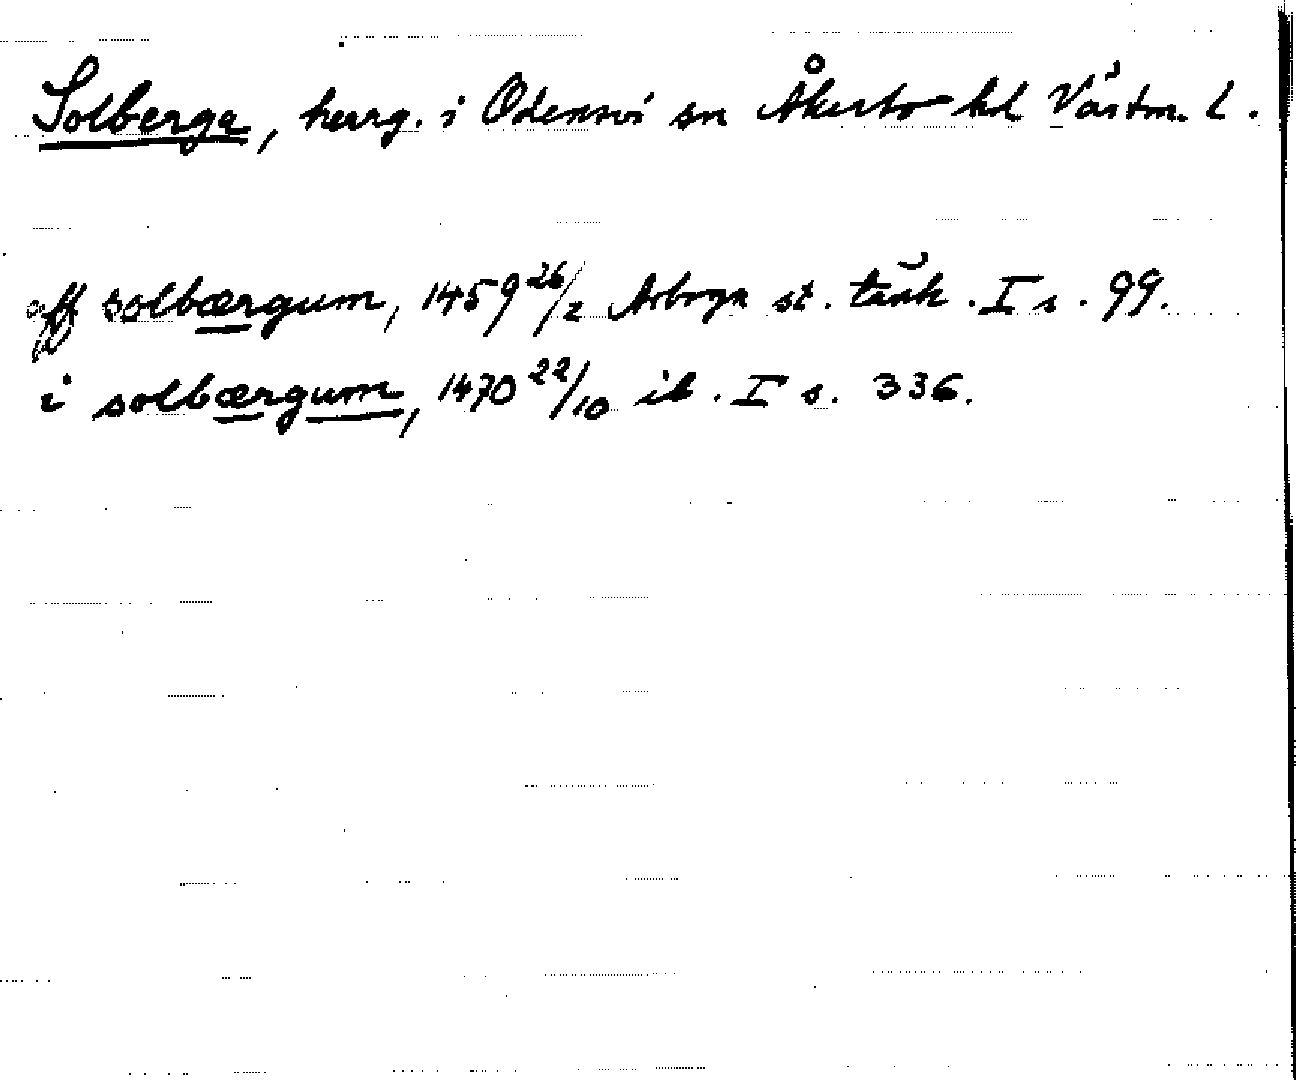 Solberga, herrg. i Odensvi sn Åkerbo hd Västm. L.
aff solbærgum, 1459 26/2 Arboga st. tänk. I s. 99.
i solbærgum, 1470 22/10 ib. I s. 336.